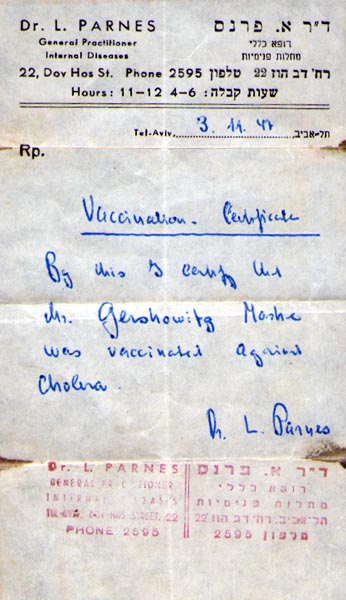 Dr. L. PARNES
General Practitioner
Internal Diseases
ד״ר א. פרנס
רופא כללי
מחלות פנימיות
22, Dov Hos St. Phone 2595 טלפון 22 רח׳ דב הוז
Hours: 11-12 4-6 :שעות קבלה
Tel-Aviv, 3. 11. 47 תל-אביב,
Rp.
Vaccination - Certificate
By this I certify that
Mr. Gershowitz Moshe
was vaccinated against
Cholera.
Dr. L. Parnes
Dr. L. PARNES
GENERAL PRACTITIONER
INTERNAL DISEASES
TEL-AVIV, DOV HOS STREET, 22
PHONE 2595
ד״ר א. פרנס
רופא כללי
מחלות פנימיות
תל-אביב, רח׳ דב הוז 22
טלפון 2595